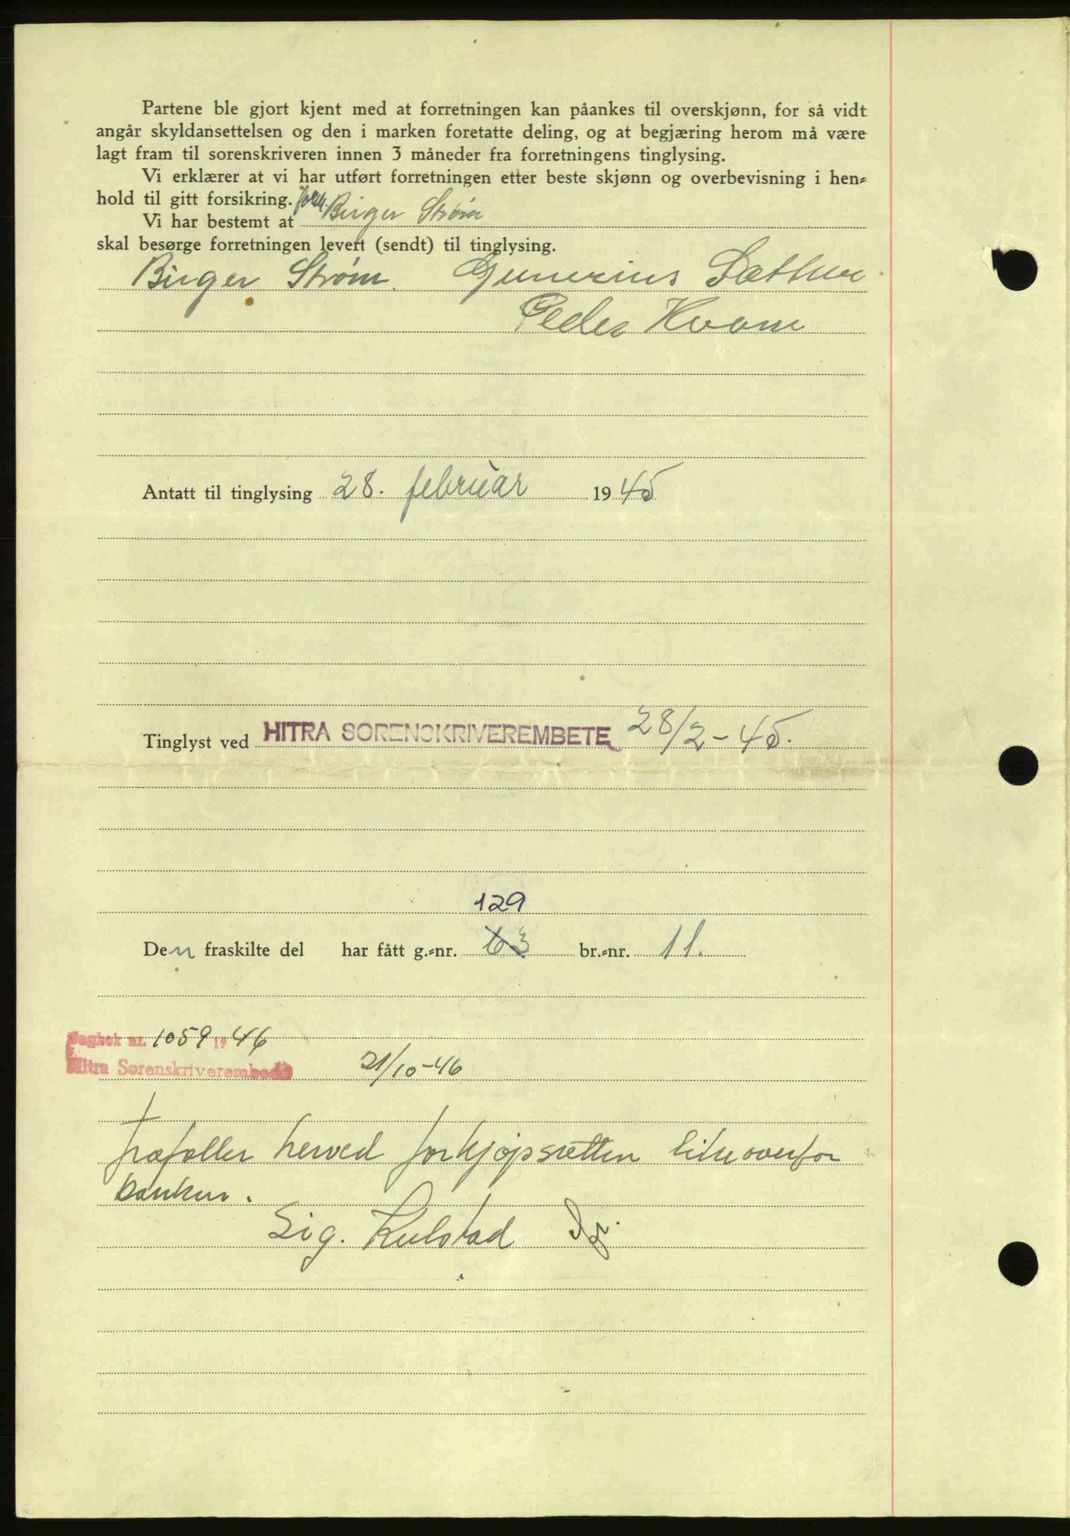 Partene ble gjort kjent med at forretningen kan påankes til overskjønn, for så vidt
angår skyldansettelsen og den i marken foretatte deling, og at begjæring herom må være
lagt fram til sorenskriveren innen 3 måneder fra forretningens tinglysing.
Vi erklærer at vi har utført forretningen etter beste skjønn og overbevisning i hen-
hold til gitt forsikring.
Vi har bestemt at form. Birger Strøm
skal besørge forretningen levert (sendt) til tinglysing.
Birger Strøm. Gunerius Sæther
Peder Kvam
Antatt til tinglysing 28. februar 1945
Tinglyst ved HITRA SORENSKRIVEREMBETE 28/2-45.
129
Den fraskilte del har fått g.-nr. 63 br.-nr. 11.
Dagbok nr. 1059 1946
Hitra Sorenskriverembede 21/10-46
frafaller herved forkjøpsretten likeoverfor
banken.
Sig. Kulstad